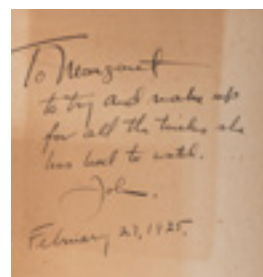 To Margaret
to try and make up
for all the tricks she
has had to watch.
John.
February 27, 1925.